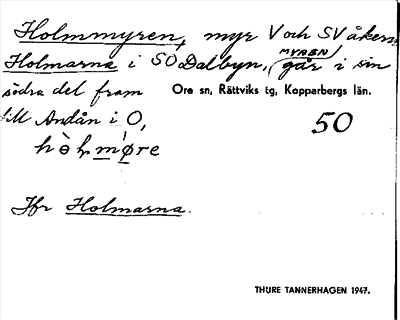 Holmmyren, myr V och SV åkern
Holmarna i SO Dalbyn, (MYREN) går i sin
södra del fram Ore sn, Rättviks tg, Kopparbergs län.
till Andån i O, 50
Jfr Holmarna.
THURE TANNERHAGEN 1947.